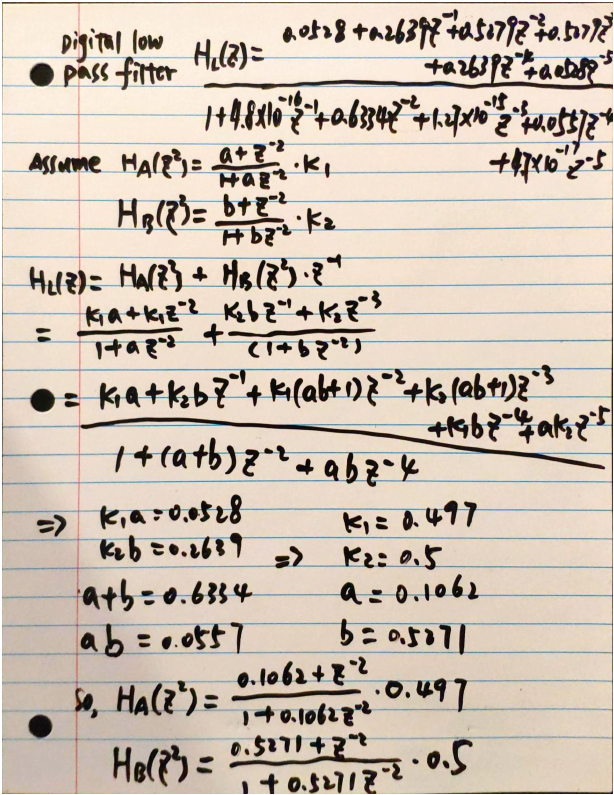 Digital low pass filter H_L(z) = 0.0528 + 0.2639z^-1 + 0.5279z^-2 + 0.5279z^-3
+ 0.2639z^-4 + 0.0528z^-5
1 + 4.8×10^-16 z^-1 + 0.6334z^-2 + 1.27×10^-15 z^-3 + 0.0557z^-4
+ 4.7×10^-17 z^-5
Assume H_A(z^2) = (a + z^-2)/(1 + az^-2) · K_1
H_B(z^2) = (b + z^-2)/(1 + bz^-2) · K_2
H_L(z) = H_A(z^2) + H_B(z^2) · z^-1
= (K_1a + K_1z^-2)/(1 + az^-2) + (K_2bz^-1 + K_2z^-3)/(1 + bz^-2)
= K_1a + K_2bz^-1 + K_1(ab+1)z^-2 + K_2(ab+1)z^-3
+ K_1bz^-4 + aK_2z^-5
1 + (a+b)z^-2 + abz^-4
⇒ K_1a = 0.0528 K_1 = 0.497
K_2b = 0.2639 ⇒ K_2 = 0.5
a+b = 0.6334 a = 0.1062
ab = 0.0557 b = 0.5271
So, H_A(z^2) = (0.1062 + z^-2)/(1 + 0.1062z^-2) · 0.497
H_B(z^2) = (0.5271 + z^-2)/(1 + 0.5271z^-2) · 0.5